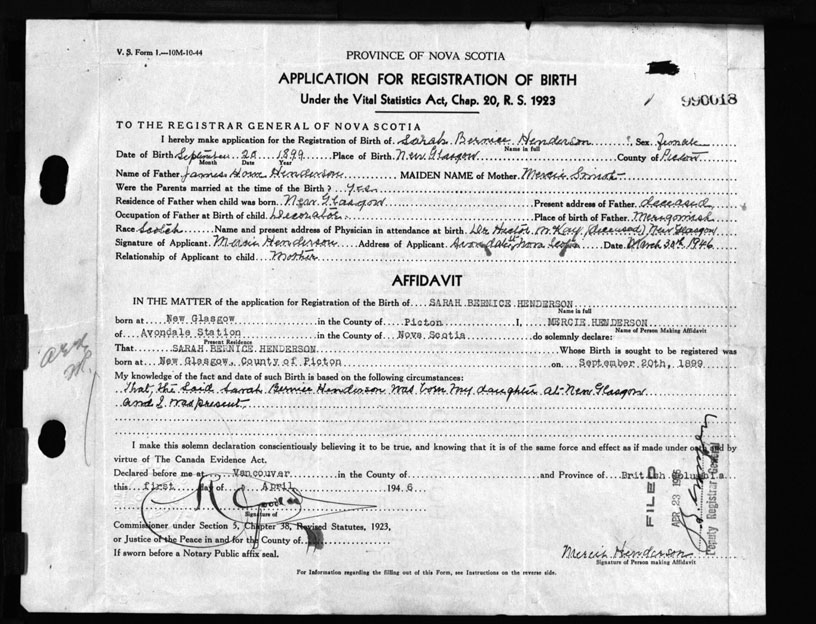 V. S. Form 1.—10M-10-44
PROVINCE OF NOVA SCOTIA
APPLICATION FOR REGISTRATION OF BIRTH
Under the Vital Statistics Act, Chap. 20, R. S. 1923
990018
TO THE REGISTRAR GENERAL OF NOVA SCOTIA
I hereby make application for the Registration of Birth of Sarah Bernice Henderson Sex female
Name in full
Date of Birth September 20 1899 Place of Birth New Glasgow County of Picton
Month Date Year
Name of Father James Hom Henderson MAIDEN NAME of Mother Mercie
Were the Parents married at the time of the Birth? Yes
Residence of Father when child was born New Glasgow Present address of Father deceased
Occupation of Father at Birth of child Decorator Place of birth of Father Merigomish
Race Scotch Name and present address of Physician in attendance at birth Dr Hector McKay (deceased) New Glasgow
Signature of Applicant Mercie Henderson Address of Applicant Avondale Nova Scotia Date March 30th 1946
Relationship of Applicant to child Mother
AFFIDAVIT
IN THE MATTER of the application for Registration of the Birth of SARAH BERNICE HENDERSON
Name in full
born at New Glasgow in the County of Picton I, MERCIE HENDERSON
Name of Person Making Affidavit
of Avondale Station in the County of Nova Scotia do solemnly declare:
Present Residence
That SARAH BERNICE HENDERSON Whose Birth is sought to be registered was
born at New Glasgow, County of Picton on September 20th, 1899
My knowledge of the fact and date of such Birth is based on the following circumstances:
That, the said Sarah Bernice Henderson was born my daughter at New Glasgow
and I was present
I make this solemn declaration conscientiously believing it to be true, and knowing that it is of the same force and effect as if made under oath by
virtue of The Canada Evidence Act.
Declared before me at Vancouver in the County of and Province of British Columbia
this first day of April 1946
Signature of
Commissioner under Section 5, Chapter 38, Revised Statutes, 1923,
or Justice of the Peace in and for the County of
If sworn before a Notary Public affix seal.
Mercie Henderson
Signature of Person making Affidavit
For Information regarding the filling out of this Form, see Instructions on the reverse side.
FILED
APR 23 1946
Deputy Registrar General